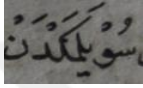 سُوْيَلَمَكْدَنْ